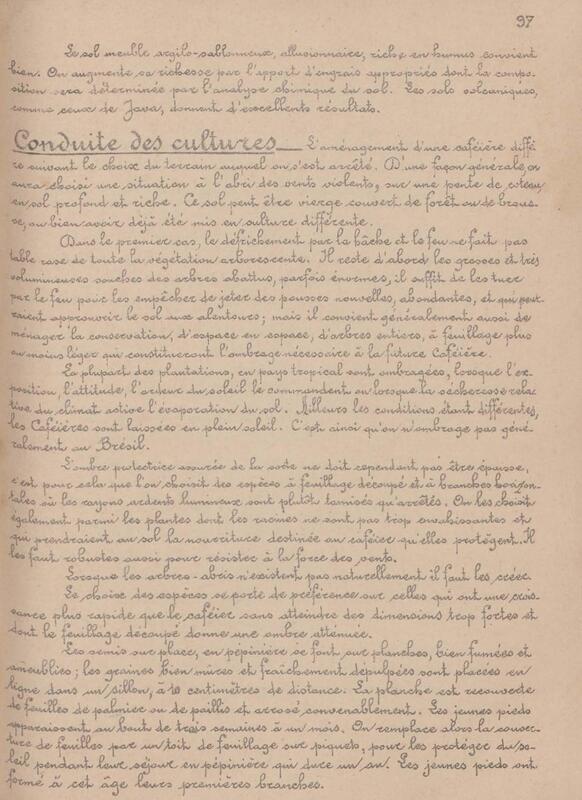 97
Le sol meuble argilo-sablonneux, allusionnaire, riche en humus convient
bien. On augmente sa richesse par l'apport d'engrais appropriés dont la compo-
sition sera déterminée par l'analyse chimique du sol. Les sols volcaniques,
comme ceux de Java, donnent d'excellents résultats.
Conduite des cultures — L'aménagement d'une caféière diffè-
re suivant le choix du terrain auquel on s'est arrêté. D'une façon générale, on
aura choisi une situation à l'abri des vents violents, sur une pente de coteau,
en sol profond et riche. Ce sol peut être vierge couvert de forêt ou de brous-
se, ou bien avoir déjà été mis en culture différente.
Dans le premier cas, le défrichement par la hâche et le feu ne fait pas
table rase de toute la végétation arborescente. Il reste d'abord les grosses et très
volumineuses souches des arbres abattus, parfois énormes, il suffit de les tuer
par le feu pour les empêcher de jeter des pousses nouvelles, abondantes, et qui peut-
raient appauvrir le sol aux alentours; mais il convient généralement aussi de
ménager la conservation, d'espace en espace, d'arbres entiers, à feuillage plus
ou moins léger qui constitueront l'ombrage nécessaire à la future Caféière.
La plupart des plantations, en pays tropical sont ombragées, lorsque l'ex-
position, l'attitude, l'ardeur du soleil le commandent ou lorsque la sécheresse rela-
tive du climat active l'évaporation du sol. Ailleurs les conditions étant différentes,
les Caféières sont laissées en plein soleil. C'est ainsi qu'on n'ombrage pas géné-
ralement au Brésil.
L'ombre protectrice assurée de la sorte ne doit cependant pas être épaisse,
c'est pour cela que l'on choisit des espèces à feuillage découpé et à branches horizon-
tales où les rayons ardents lumineux sont plutôt tamisés qu'arrêtés. On les choisit
également parmi les plantes dont les racines ne sont pas trop envahissantes et
qui prendraient au sol la nourriture destinée au caféier qu'elles protègent. Il
les faut robustes aussi pour résister à la force des vents.
Lorsque les arbres-abris n'existent pas naturellement il faut les créer.
Le choix des espèces se porte de préférence sur celles qui ont une crois-
sance plus rapide que le caféier sans atteindre des dimensions trop fortes et
dont le feuillage découpé donne une ombre attenuée.
Les semis sur place, en pépinière se font sur planches, bien fumées et
ameublies; les graines bien mûres et fraîchement dépulpées sont placées en
ligne dans un sillon, à 10 centimètres de distance. La planche est recouverte
de feuilles de palmier ou de paillis et arrosé convenablement. Les jeunes pieds
apparaissent au bout de trois semaines à un mois. On remplace alors la couver-
ture de feuilles par un toit de feuillage sur piquets, pour les protéger du so-
leil pendant leur séjour en pépinière qui dure un an. Les jeunes pieds ont
formé à cet âge leurs premières branches.